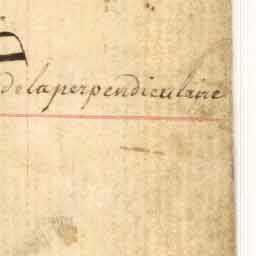 D
de la perpendiculaire